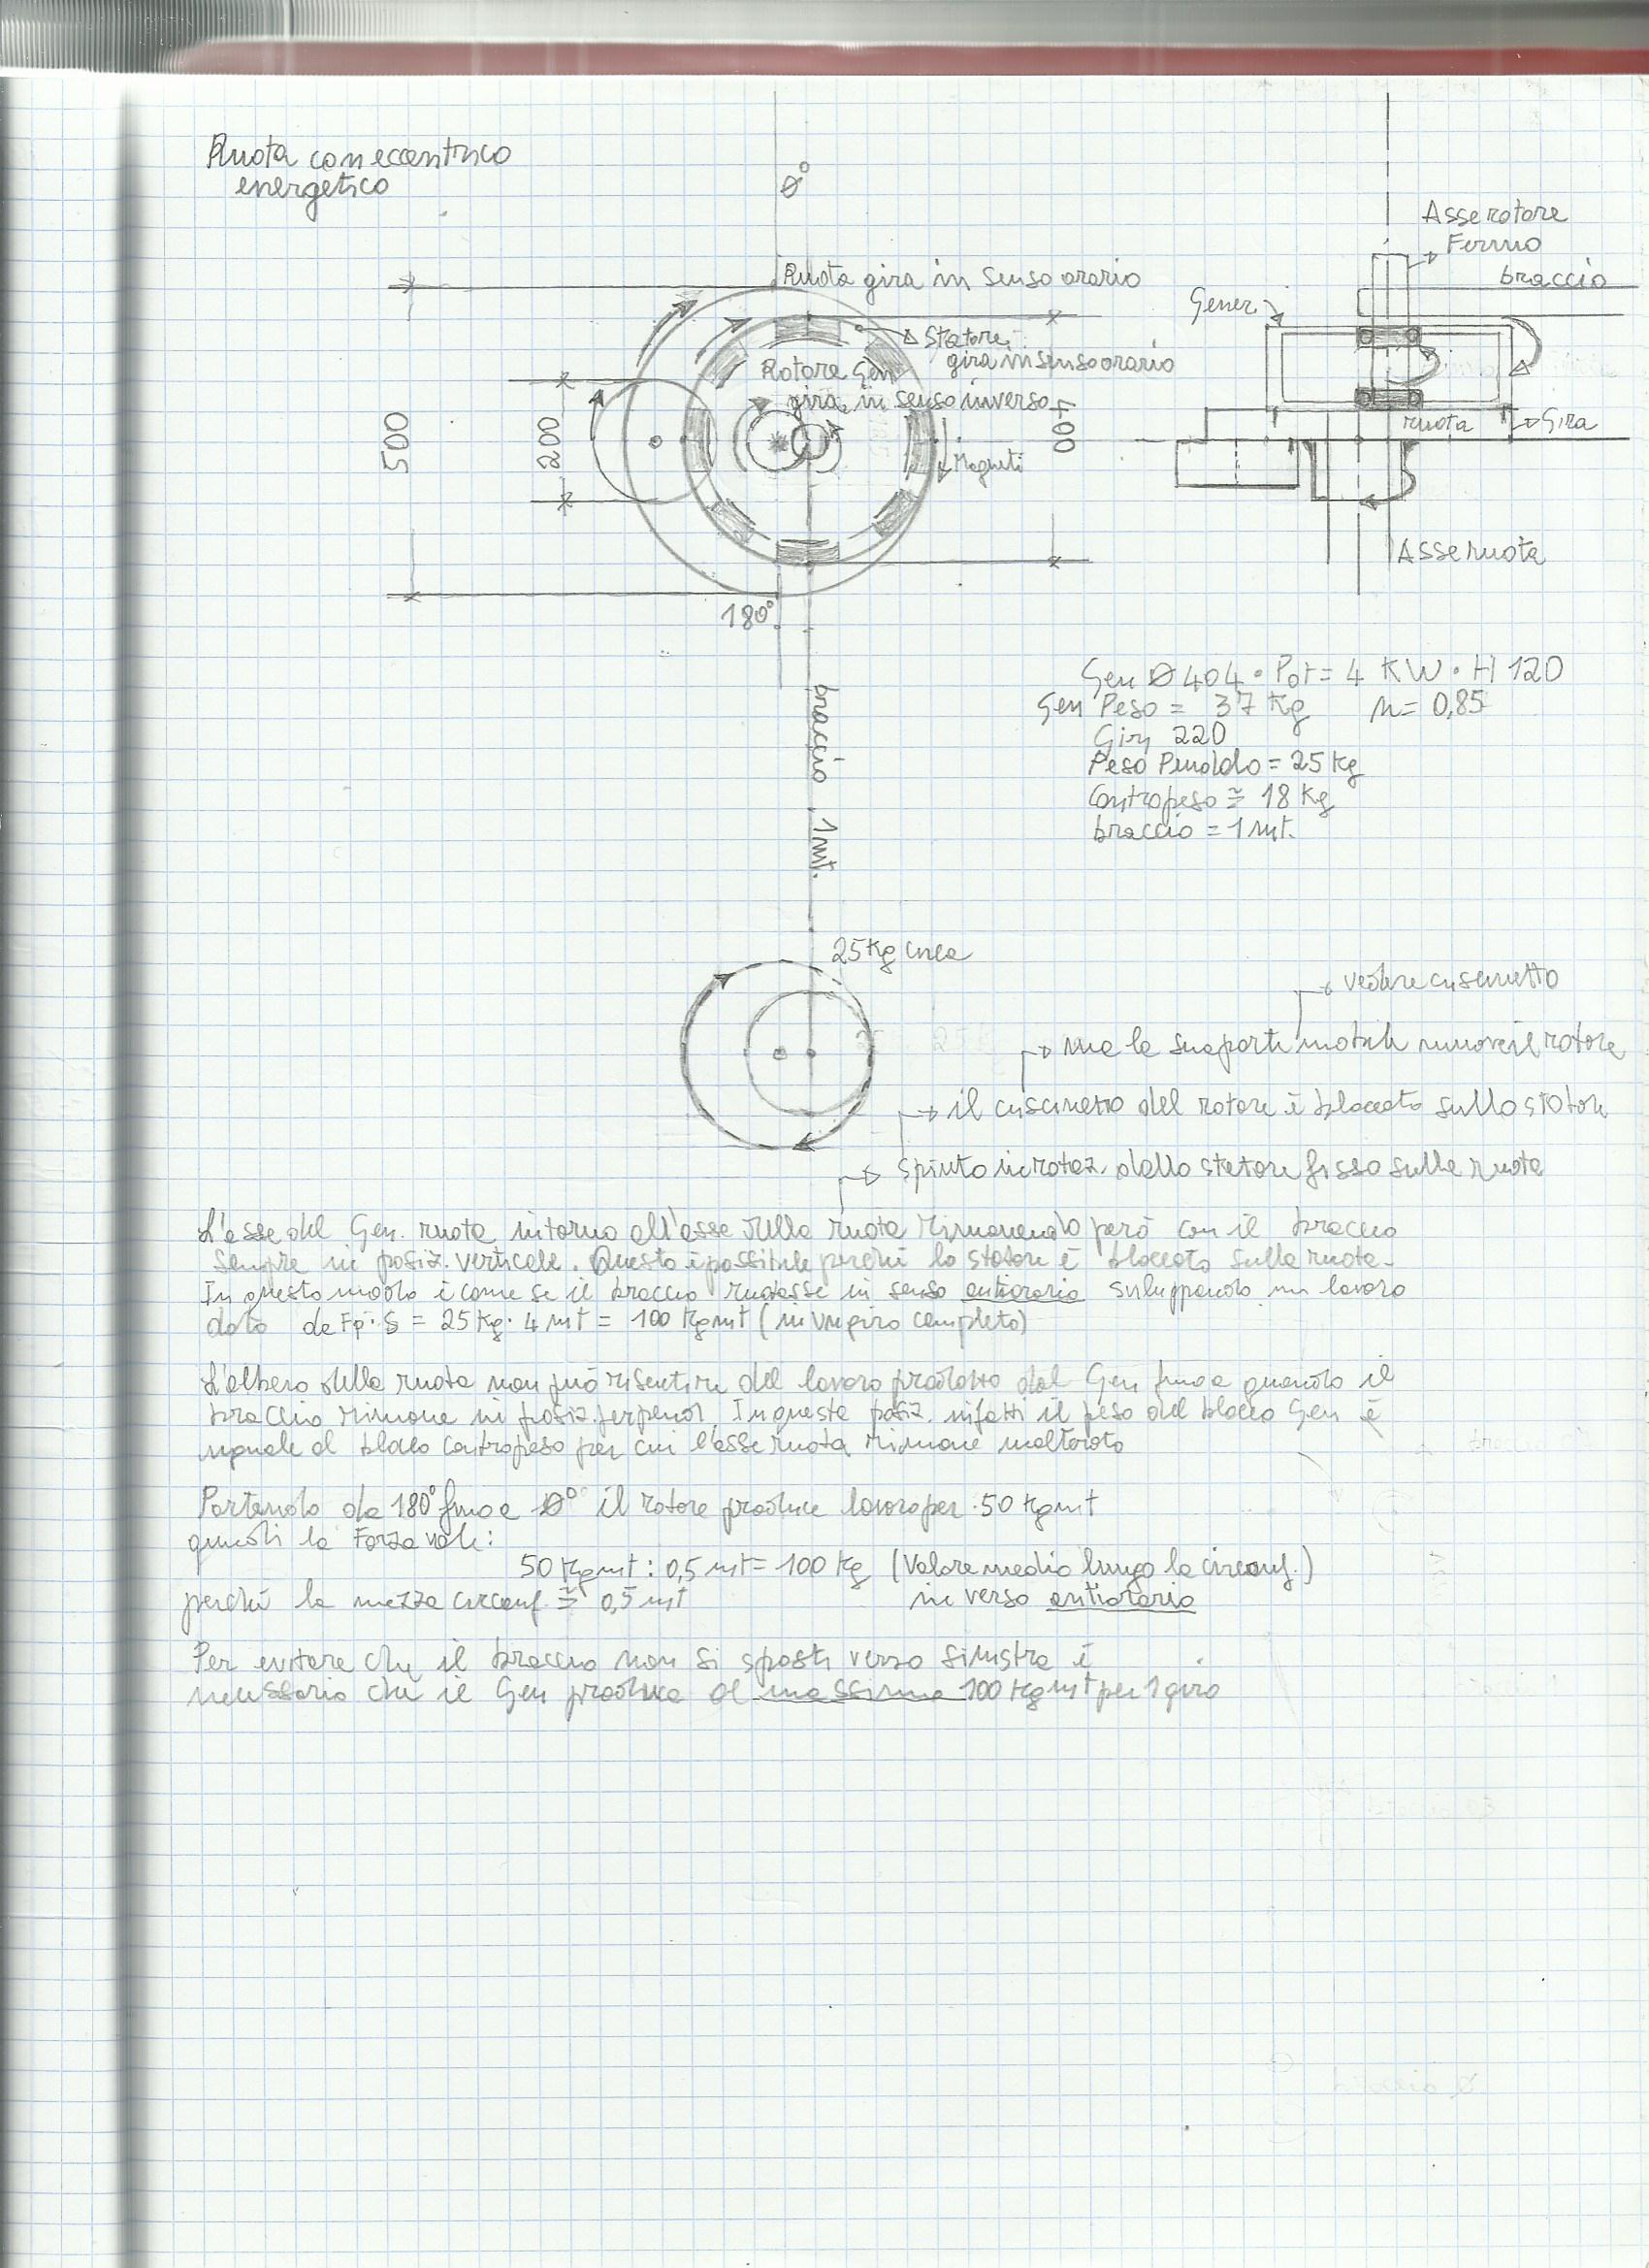 Ruota con eccentrico
energetico
Ø°
Ruota gira in senso orario
Statore
gira in senso orario
Rotore Gen
gira in senso inverso
Magneti
500
200
400
180°
braccio 1 mt.
Asse rotore
Fermo
braccio
Gener.
ruota
Gira
Asse ruota
Gen Ø 404 • Pot = 4 KW • H 120
Gen Peso = 37 Kg n = 0,85
Giri 220
Peso Pendolo = 25 Kg
Contropeso ≅ 18 Kg
braccio = 1 mt.
25 Kg circa
vedere cuscinetto
ma la sua parte mobile muove il rotore
il cuscinetto del rotore è bloccato sullo statore
spinto in rotaz. dallo statore fisso sulla ruota
L'asse del Gen. ruota intorno all'asse della ruota rimanendo però con il braccio
sempre in posiz. verticale. Questo è possibile perchè lo statore è bloccato sulla ruota.
In questo modo è come se il braccio ruotasse in senso antiorario sviluppando un lavoro
dato da Fp • S = 25 Kg • 4 mt = 100 Kgmt (in un giro completo)
L'albero della ruota non può risentire del lavoro prodotto dal Gen fino a quando il
braccio rimane in posiz. perpend. In questa posiz. infatti il peso del blocco Gen è
uguale al blocco contropeso per cui l'asse ruota rimane inalterato
Partendo da 180° fino a Ø° il rotore produce lavoro per 50 Kgmt
quindi la Forza vale:
50 Kgmt : 0,5 mt = 100 Kg (Valore medio lungo la circonf.)
perchè la mezza circonf. ≅ 0,5 mt in verso antiorario
Per evitare che il braccio non si sposti verso sinistra è
necessario che il Gen produca al massimo 100 Kgmt per 1 giro